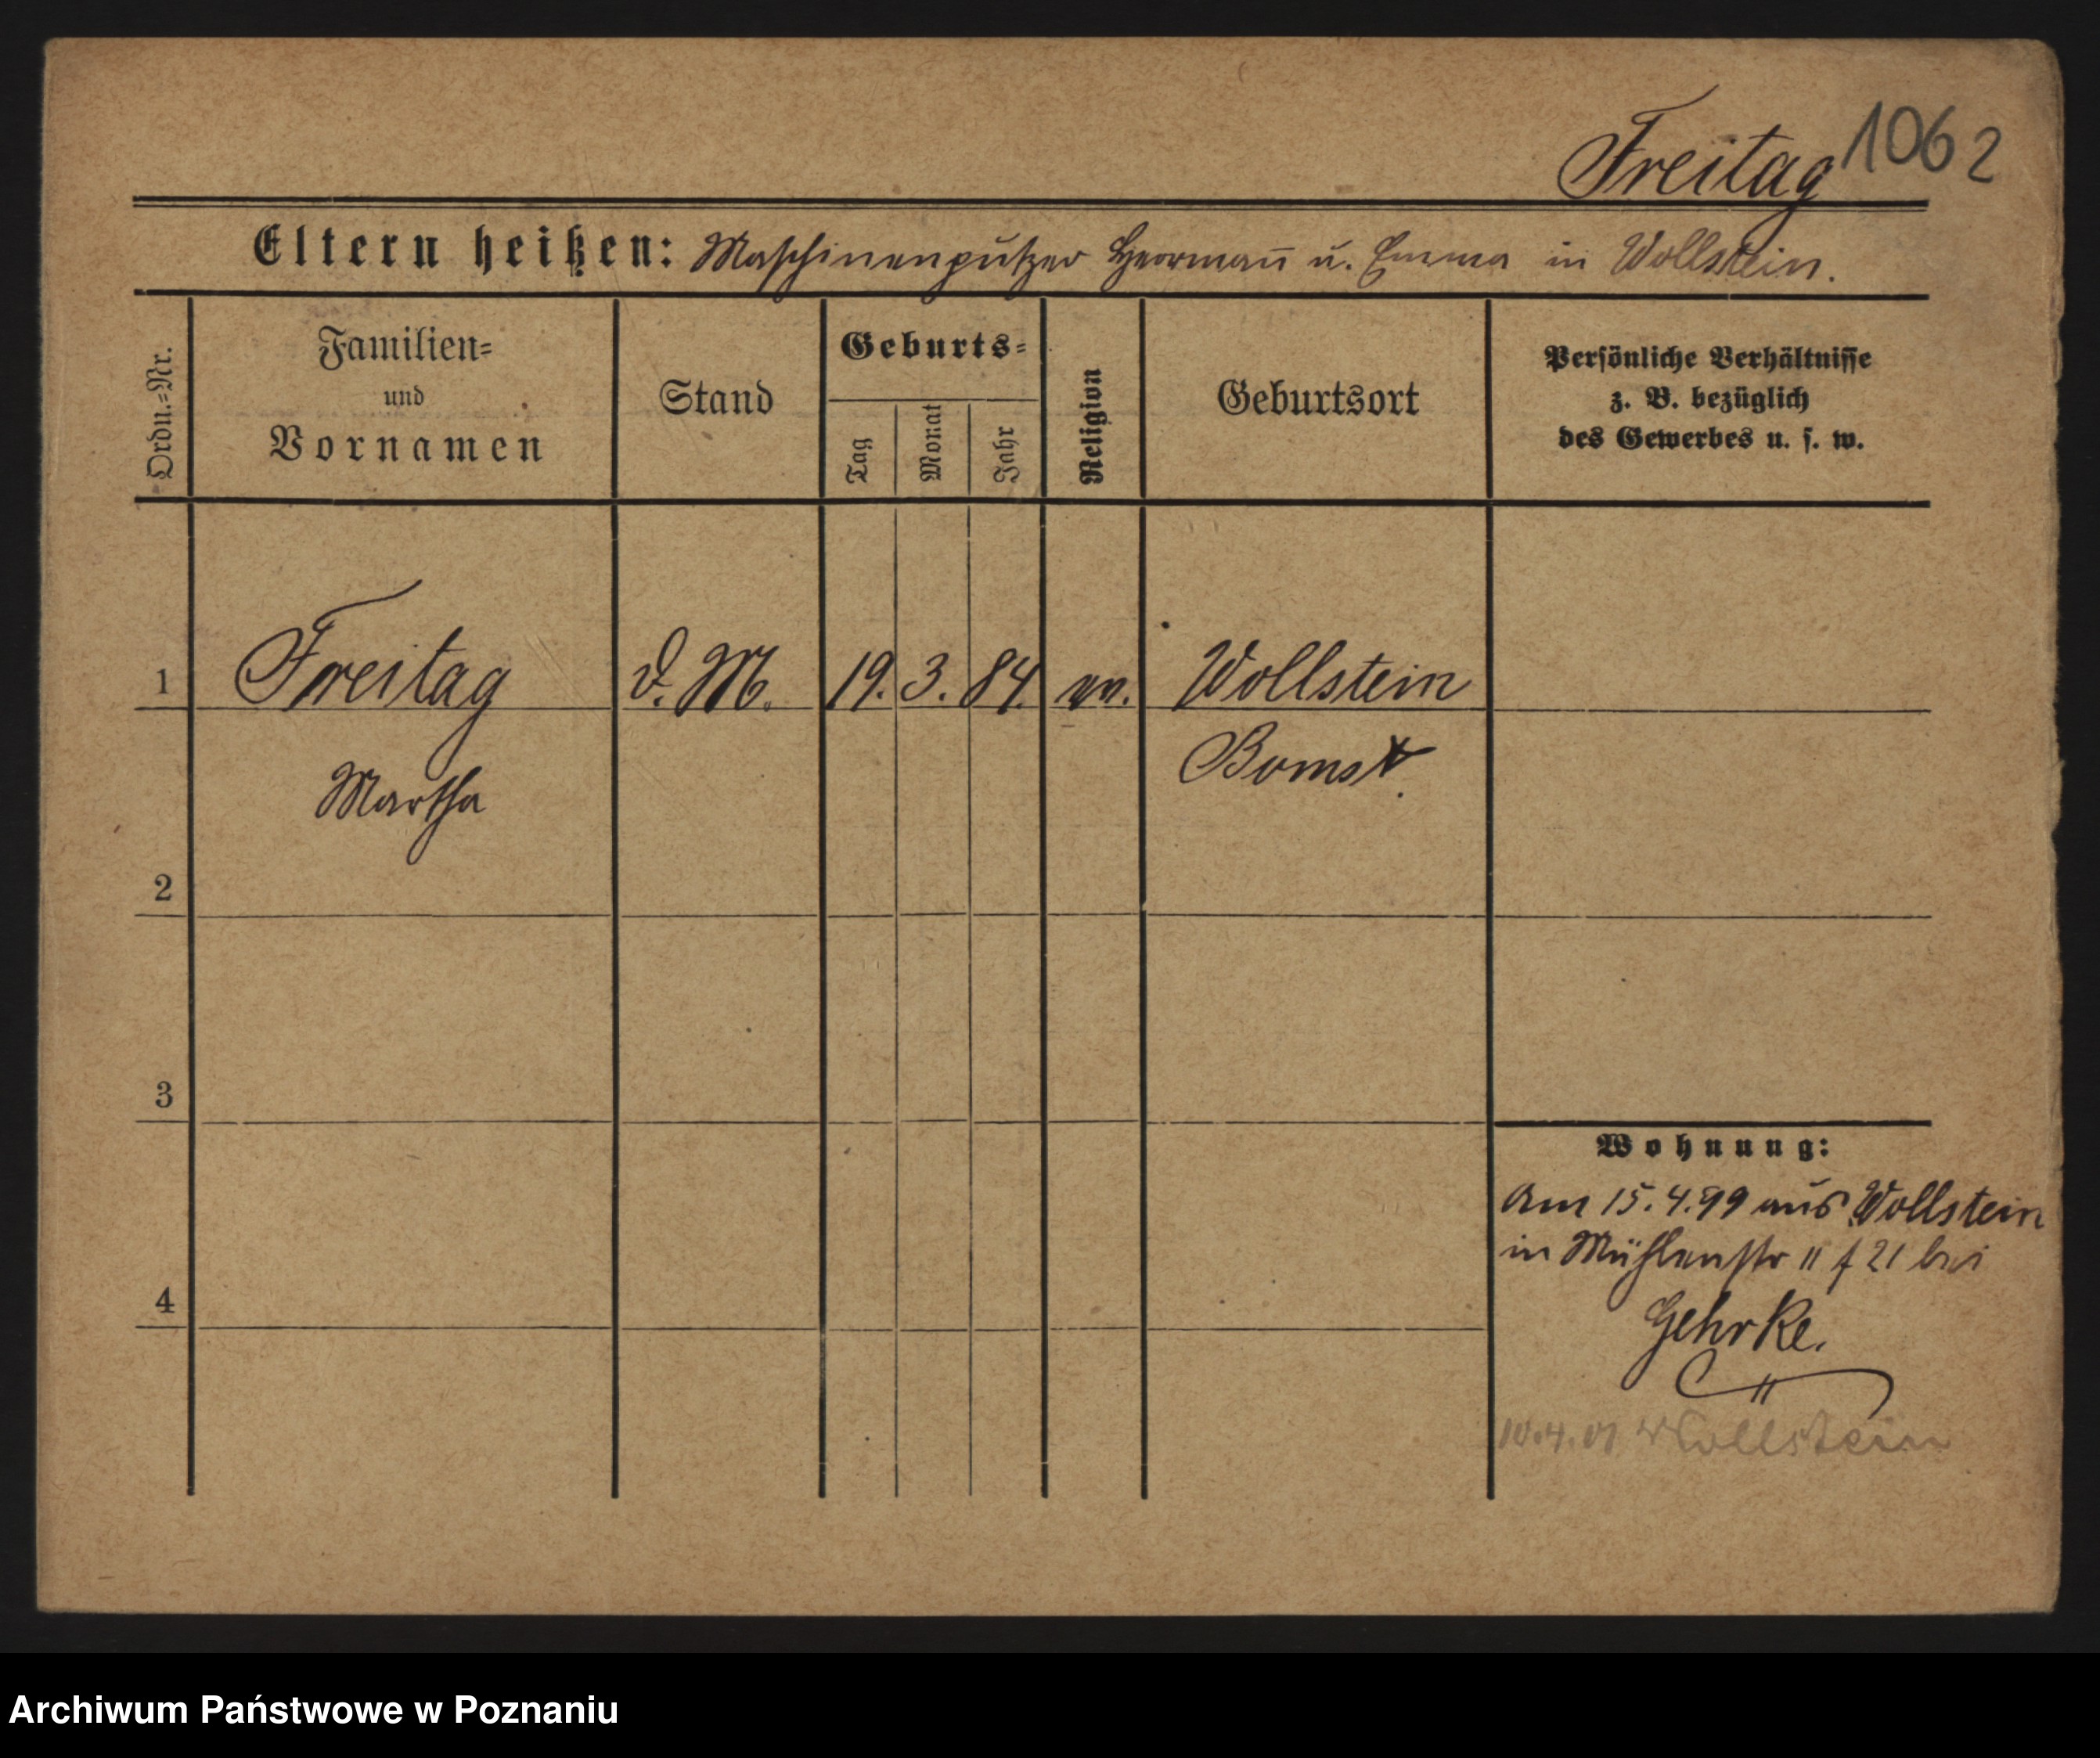 Freitag 1062
Eltern heißen: Maschinenputzer Herrmann̄ u. Emma in Wollstein.
Ordn.=Nr.
Familien=
und
Vornamen
Stand
Geburts=
Tag
Monat
Jahr
Religion
Geburtsort
Persönliche Verhältnisse
z. B. bezüglich
des Gewerbes u. s. w.
1 Freitag d. M. 19. 3. 84. ev. Wollstein
Martha Bomst.
2
3
Wohnung:
Am 15.4.99 aus Wollstein
in Mühlenstr 11 f 21 bei
4
Gehrke.
10.4.01 Wollstein
Archiwum Państwowe w Poznaniu